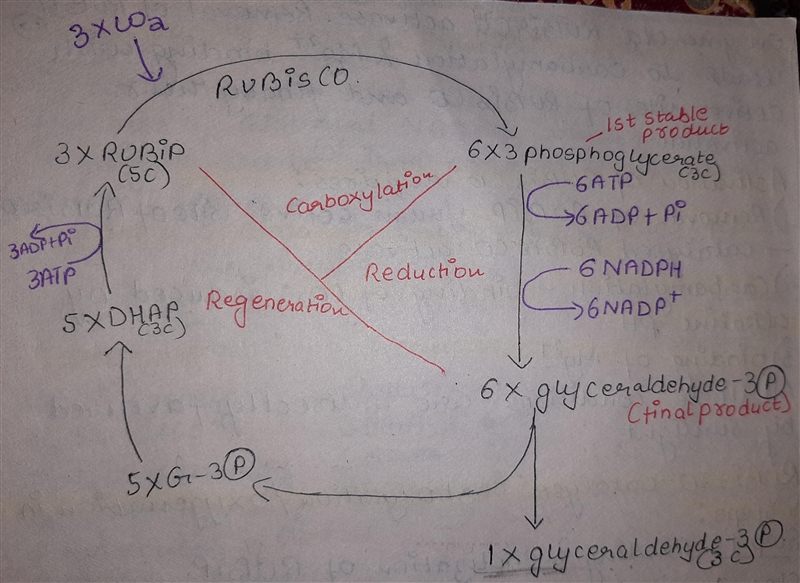 3×CO2
RUBISCO
1st stable
product
3×RUBiP
(5C)
6×3 phosphoglycerate
(3C)
Carboxylation
6ATP
6ADP+Pi
3ADP+Pi
3ATP
Reduction
6 NADPH
6NADP+
Regeneration
5×DHAP
(3C)
6× glyceraldehyde-3 P
(final product)
5×G-3 P
1×glyceraldehyde-3 P
(3C)